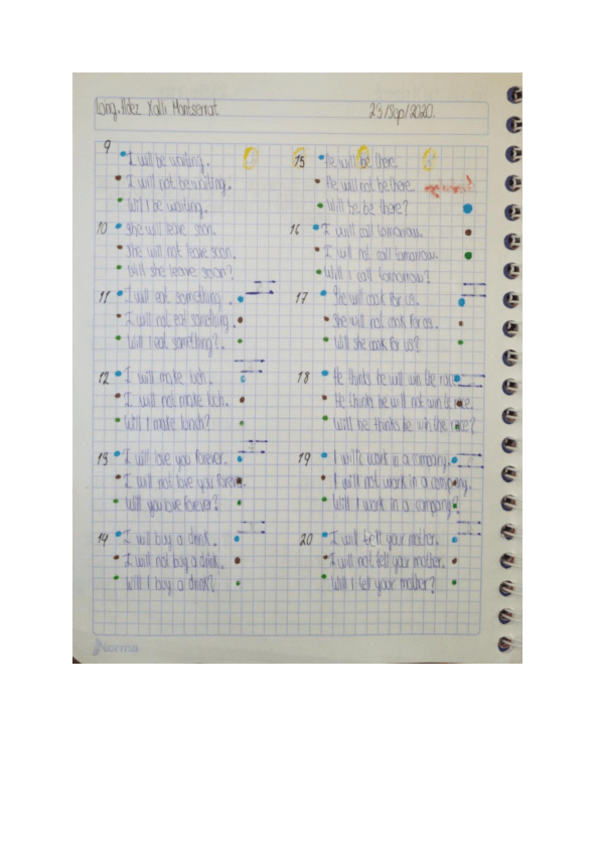 Long. Hdez Xalli Montserrat 23/Sep/2020.
9
I will be waiting.
I will not be waiting.
Will I be waiting.
10 She will leave soon.
She will not leave soon.
Will she leave soon?
11 I will eat something.
I will not eat something.
Will I eat something?.
12 I will make lunch.
I will not make lunch.
Will I make lunch?
13 I will love you forever.
I will not love you forever.
Will you love forever?
14 I will buy a drink.
I will not buy a drink.
Will I buy a drink?
15 He will be there.
He will not be there.
Will be be there?
16 I will call tomorrow.
I will not call tomorrow.
Will I call tomorrow?
17 She will cook for us.
She will not cook for us.
Will she cook for us?
18 He thinks he will win the race.
He thinks he will not win the race.
Will he thinks he win the race?
19 I will work in a company.
I will not work in a company.
Will I work in a company?
20 I will tell your mother.
I will not tell your mother.
Will I tell your mother?
Norma